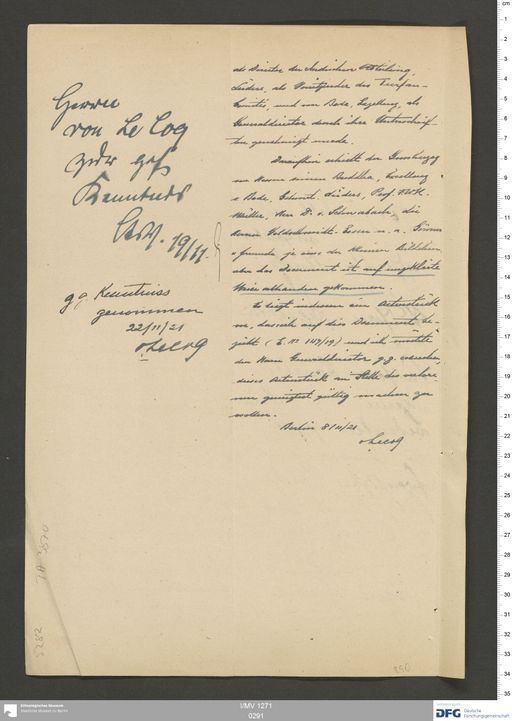 Herrn
von Le Coq
zur gefl
Kenntnis
19/11.
g g Kenntniss
genommen
22/11/21
vLeCoq
als Direktor der Indischen Abteilung,
Lüders, als Vorsitzender des Turfan-
Comités, und von Bode, Exzellenz, als
Generaldirektor durch ihre Unterschrif-
ten genehmigt wurde.
Daraufhin erhielt der Grossherzog
von Hessen einen Buddha, Exzellenz
v Bode, Geheimr. Lüders, Prof. F.W.K.
Müller, Herr D. v. Schwabach, die
Herren Goldschmidt, Esser u. a. Gönner
u freunde je eins der kleinen Bildchen
aber das Document ist auf ungeklärte
Weise abhanden gekommen.
Es liegt indessen ein Actenstück
vor, das sich auf dies Document be-
zieht (E. No 149/19) und ich möchte
den Herrn Generaldirektor g. g. ersuchen,
dieses Actenstück an Stelle des verlore-
nen geneigtest gültig machen zu
wollen.
Berlin 8/11/21
vLeCoq
IA 3870
5282
250
Ethnologisches Museum
Staatliche Museen zu Berlin
I/MV 1271
0291
DFG Deutsche
Forschungsgemeinschaft